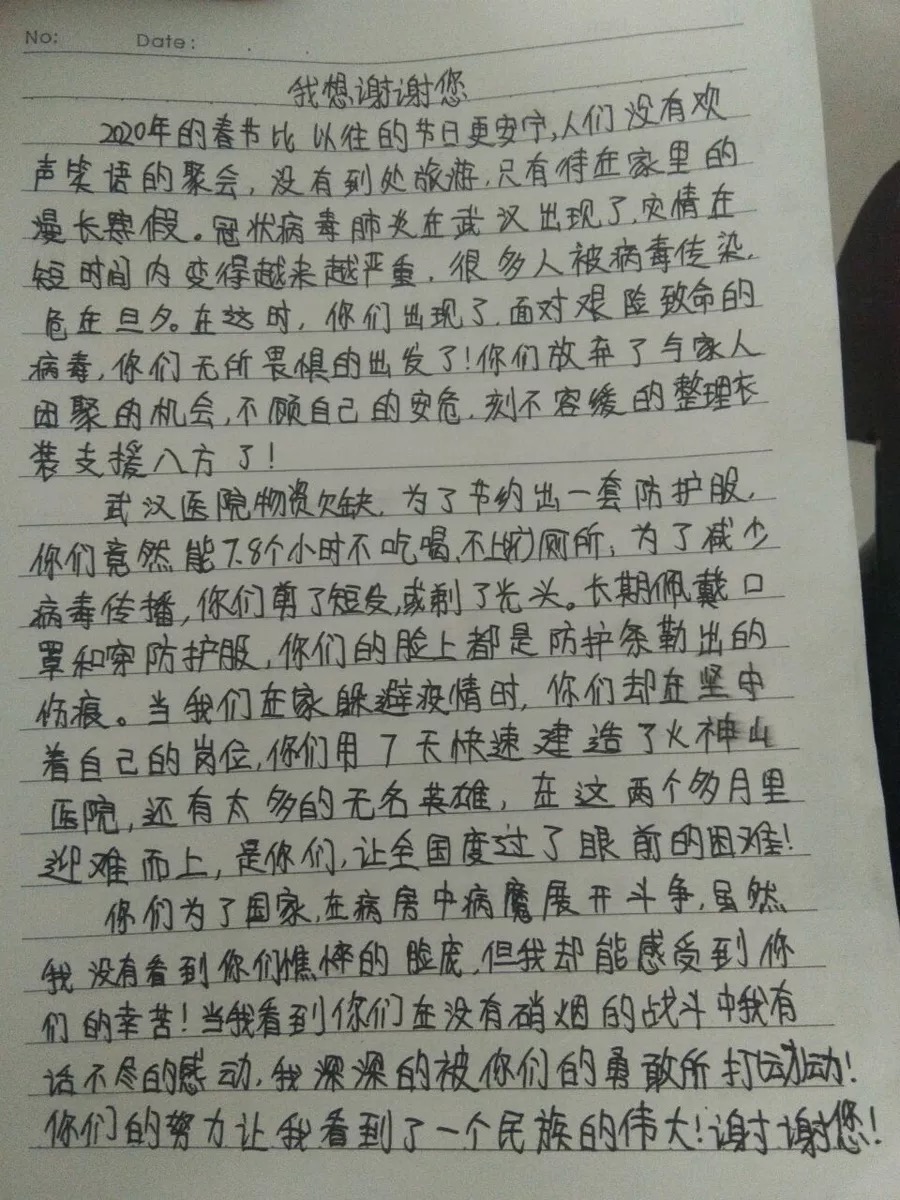 No:
Date:
我想谢谢您
2020年的春节比以往的节日更安宁,人们没有欢
声笑语的聚会,没有到处旅游,只有待在家里的
漫长寒假。冠状病毒肺炎在武汉出现了,灾情在
短时间内变得越来越严重,很多人被病毒传染,
危在旦夕。在这时,你们出现了,面对艰险致命的
病毒,你们无所畏惧的出发了!你们放弃了与家人
团聚的机会,不顾自己的安危,刻不容缓的整理衣
装支援八方了!
武汉医院物资欠缺,为了节约出一套防护服,
你们竟然能7、8个小时不吃喝、不上厕所;为了减少
病毒传播,你们剪了短发,或剃了光头。长期佩戴口
罩和穿防护服,你们的脸上都是防护条勒出的
伤痕。当我们在家躲避疫情时,你们却在坚守
着自己的岗位,你们用7天快速建造了火神山
医院,还有太多的无名英雄,在这两个多月里
迎难而上,是你们,让全国度过了眼前的困难!
你们为了国家,在病房中病魔展开斗争,虽然
我没有看到你们憔悴的脸庞,但我却能感受到你
们的辛苦!当我看到你们在没有硝烟的战斗中我有
话不尽的感动,我深深的被你们的勇敢所打动!
你们的努力让我看到了一个民族的伟大!谢谢您!